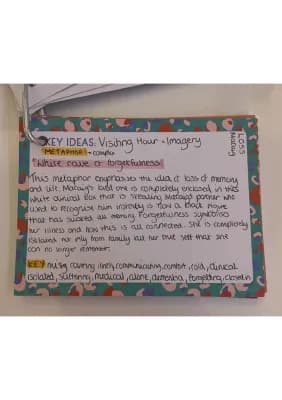 KEY IDEAS: Visiting Hour - Imagery
LOSS
METAPHOR - complex
"White cave of forgetfulness"
This metaphor emphasises the idea of loss of memory
and life. Maccaig's loved one is completely enclosed in this
white clinical box that is stealing Maccaig's partner who
used to recognise him instantly is now a blank figure
that has suffered all memory. Forgetfulness symbolises
her illness and how this is all connected. She is completely
isolated not only from family but her true self that she
can no longer remember.
KEY: nursing, covering, illness, communication, comfort, cold, clinical
isolated, suffering, medical, alone, dementia, forgetting, closed in